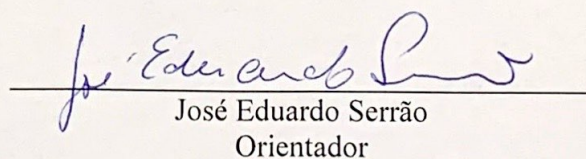 José Eduardo Serrão
José Eduardo Serrão
Orientador